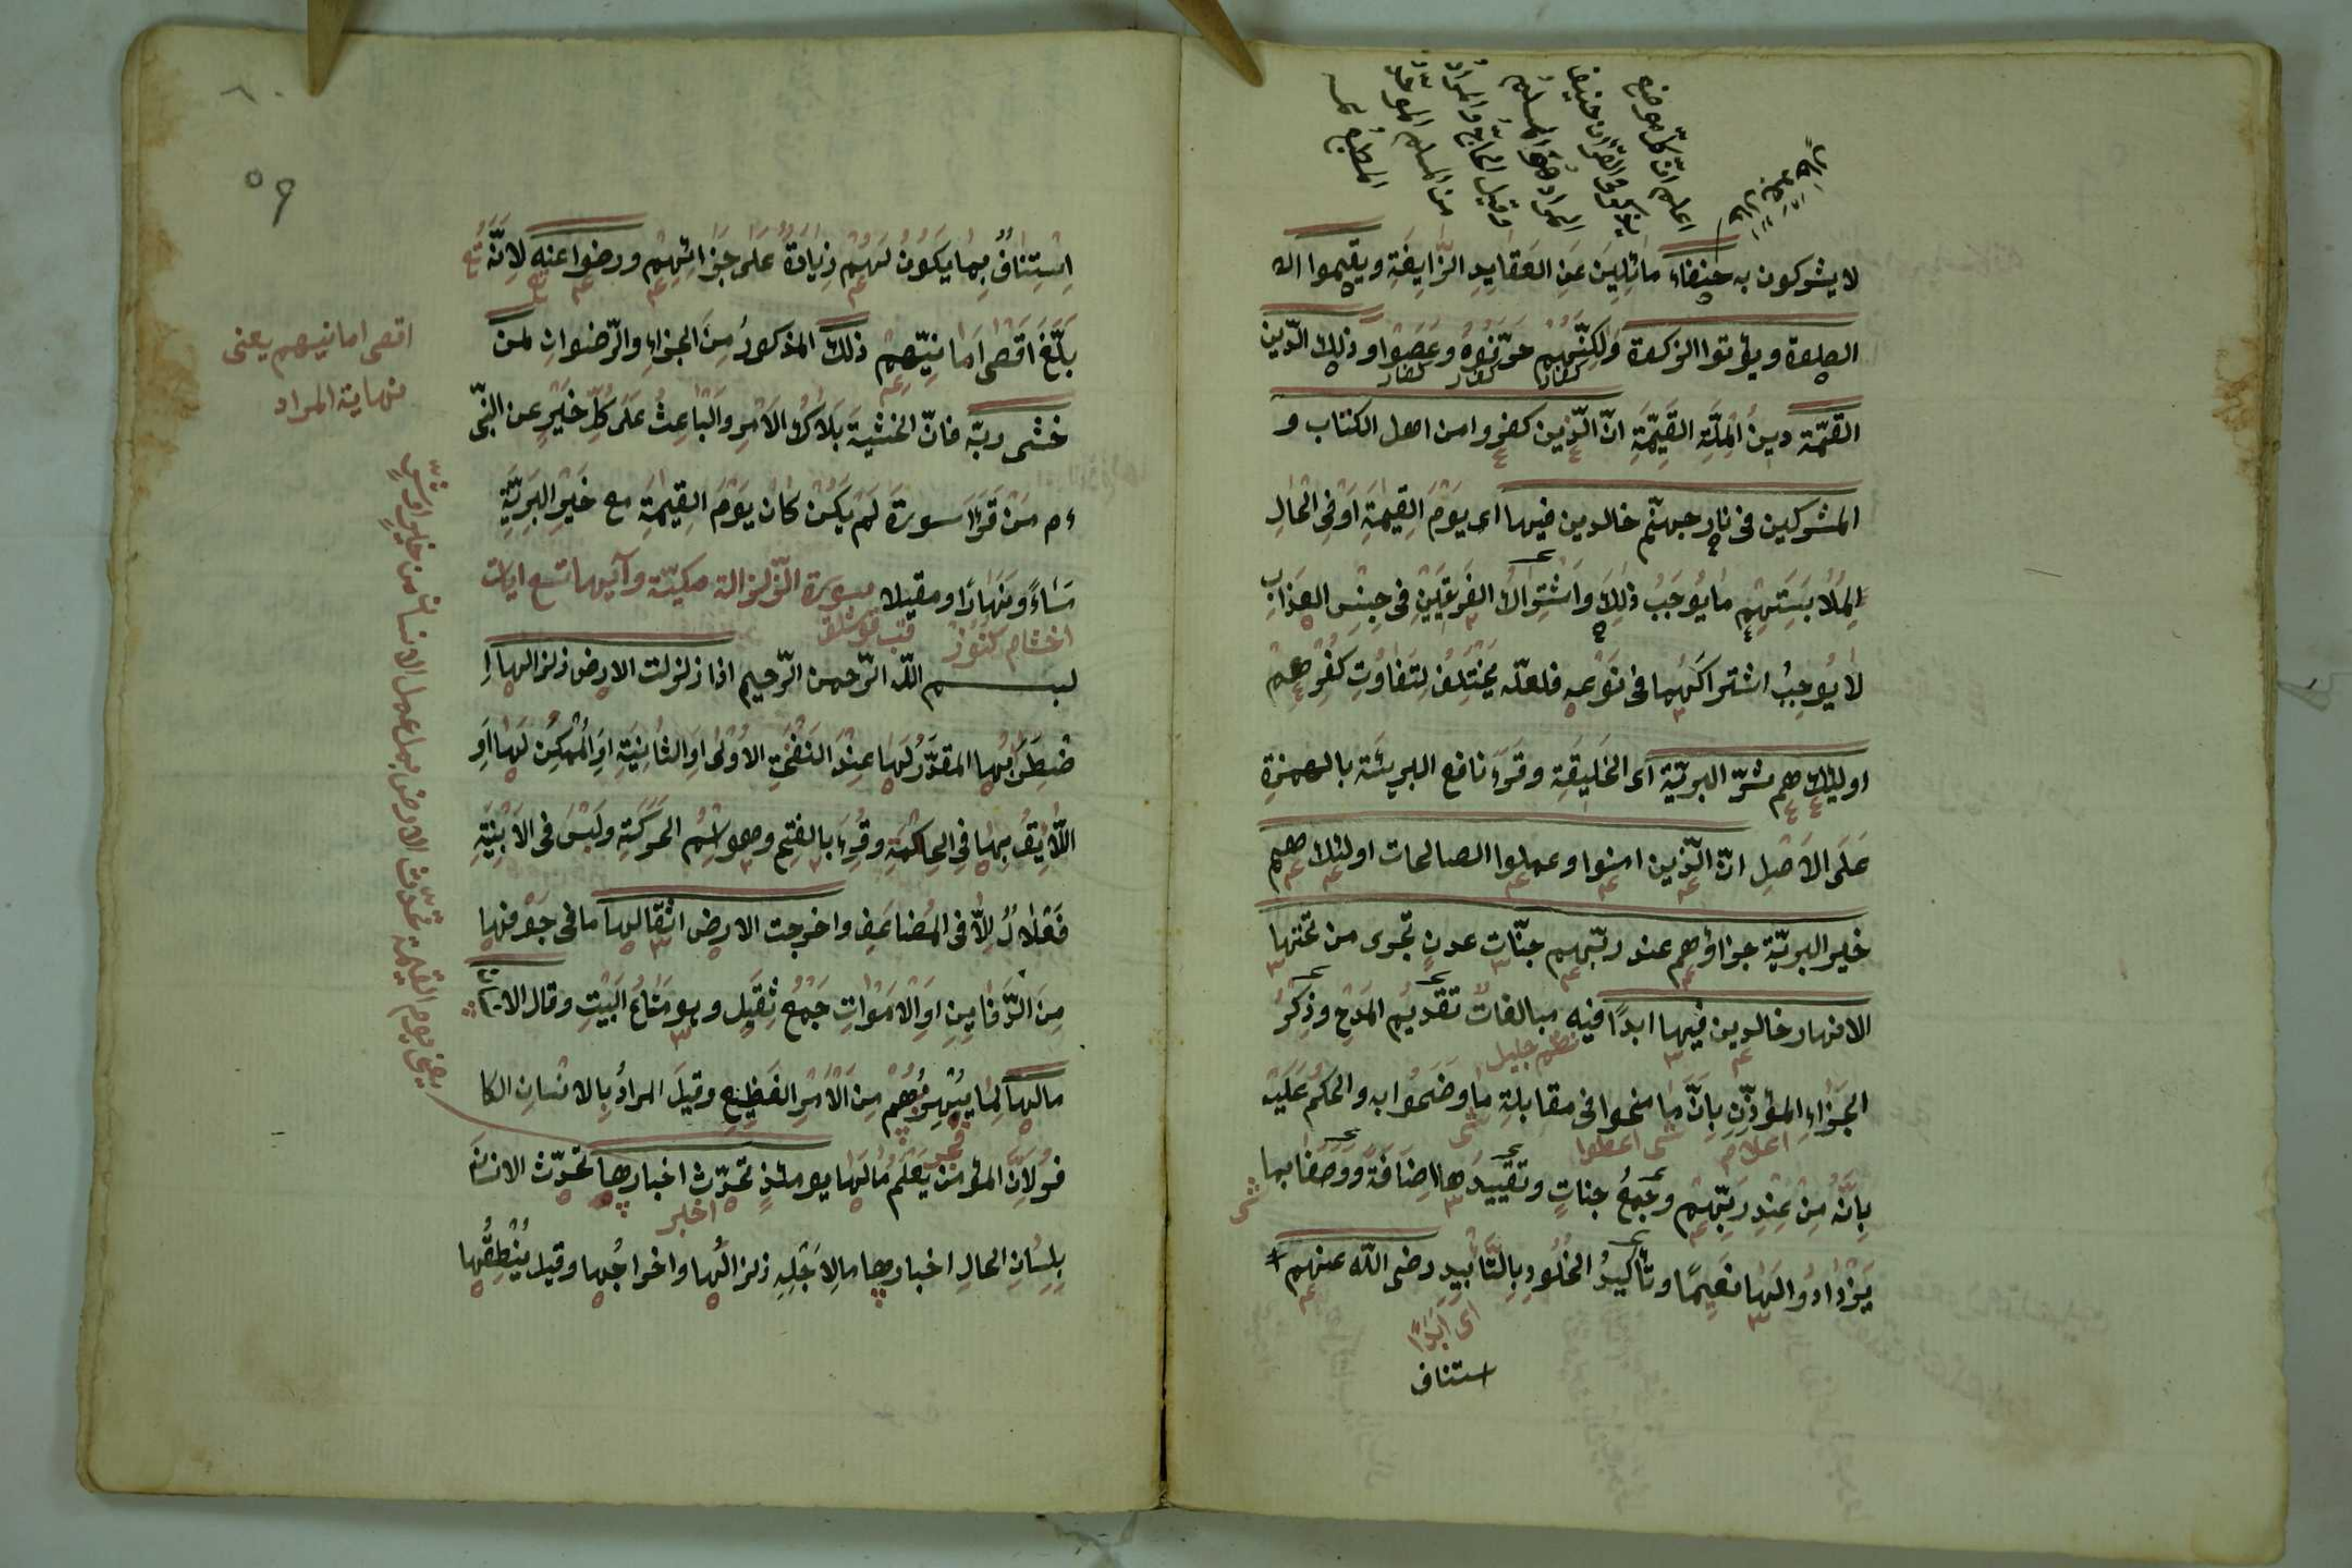 اعلم انّ كلّ موضع
يذكر في القرآن حنيفا
المراد هو المسلم
وقيل الحاجّ والمراد
من المسلم الموحد
المطيع
لا يشركون به حنفاء مائِلينَ عَنِ العَقَايِدِ الزَّايِغَةِ ويقيموا الـ
الصلوة ويؤتوا الزكوة وَلكِنَّهُم حَرَّفُوهُ وعَصَوْا وذلك الدّين
كفار كفار كفار
القيّمة دينُ المِلَّةِ القَيِّمَةِ انّ الّذين كفروا من اهل الكتاب و
المشركين في نار جهنّم خالدين فيها اى يَوْمَ القِيمَةِ اَوْ فِى الحَالِ
لِمُلَابَسَتِهِم مَا يُوجِبُ ذلِكَ وَاشْتِرَاكُ الفَرِيقَيْنِ فِى جِنْسِ العَذَابِ
لَا يُوجِبُ اشتراكَهُما فى نَوْعِهِ فلعلّه يَخْتَلِفُ لِتَفَاوُتِ كُفْرِهِمْ
اولئك هم شرّ البريّة اى الخَلِيقَةِ وقَرَءَ نافع البريئَة بالهمزة
عَلَى الاَصْلِ انّ الّذين امنوا وعملوا الصالحات اولئك هم
خير البريّة جزاؤهم عند ربّهم جنّات عدنٍ تجرى من تحتها
الانهار خالدين فيها ابدًا فيه مبالغاتٌ تقديمُ المَدْحِ وذِكْرُ
الجَزَاءِ المُؤذِنِ بِاَنَّ مَا مُنِحُوا فى مقابلةِ مَا وُصِفُوا به والحكم عَلَيْهِ
اعلام اعطوا
بِاَنَّهُ مِنْ عِنْدِ رَبِّهِمْ وجَمْعُ جناتٍ وتَقْيِيدُهَا اِضَافَةً وَوَصْفًا بما
يَزْدَادُ لَهَا نَعِيمًا وتأكيدُ الخُلُودِ بِالتَّأبِيدِ رضى اللّه عنهم
اى اَبَدًا
استناف
٥٩
اِسْتِينَافٌ بِمَا يَكُونُ لَهُمْ زِيَادَةً عَلَى جَزَائِهِمْ ورضوا عنه لِاَنَّهُ
بَلَّغَ اَقْصَى اَمَانِيِّهِمْ ذلك المذكورُ مِنَ الجزاءِ والرّضوانِ لمن
اقصى امانيهم يعنى
نهاية المراد
خشى ربّه فانّ الخشيةَ مِلَاكُ الاَمْرِ والبَاعِثُ عَلَى كُلِّ خَيْرٍ عن النّبى
ءم مَنْ قَرَأَ سورةَ لَمْ يَكُنْ كانَ يَوْمَ القِيمَةِ مع خَيْرِ البَرِيَّةِ
مَسَاءً ونَهَارًا ومقيلا سورة الزّلزالة مكيّة وآيها تسع ايات
بسم اللّه الرّحمن الرّحيم اذا زلزلت الارض زلزالها اِ
ضْطِرَابُها المقدَّرُ لَهَا عِنْدَ النَفْخَةِ الاُولى اَوِ الثانِيَةِ اَوِ المُمْكِنُ لَهَا اَوِ
اللَّايِقُ بِهَا فى الحِكْمَةِ وقُرِءَ بالفتح وهو اسْمُ الحَرَكَةِ ولَيْسَ فى الاَبْنِيَةِ
فَعْلَالٌ اِلَّا فى المُضَاعَفِ واخرجت الارض اثقالها ما فى جَوْفِها
مِنَ الدَّفَايِنِ اَوِ الاَمْوَاتِ جَمْعُ ثِقَلٍ وهو مَتَاعُ البَيْتِ وقال الا
مالها لِمَا يَبْهَرُهُمْ مِنَ الاَمْرِ الفَظِيعِ وقيلَ المرادُ بِالانسَانِ الكا
فرُ لِاَنَّ المؤمنَ يَعْلَمُ مَا لَهَا يومئذٍ تحدّث اخبارها تحدّث الانسان
اخبر
بِلِسَانِ الحالِ اخبارها ما لِاَجْلِهِ زلزالُها واخراجُها وقيل يُنْطِقُهَا